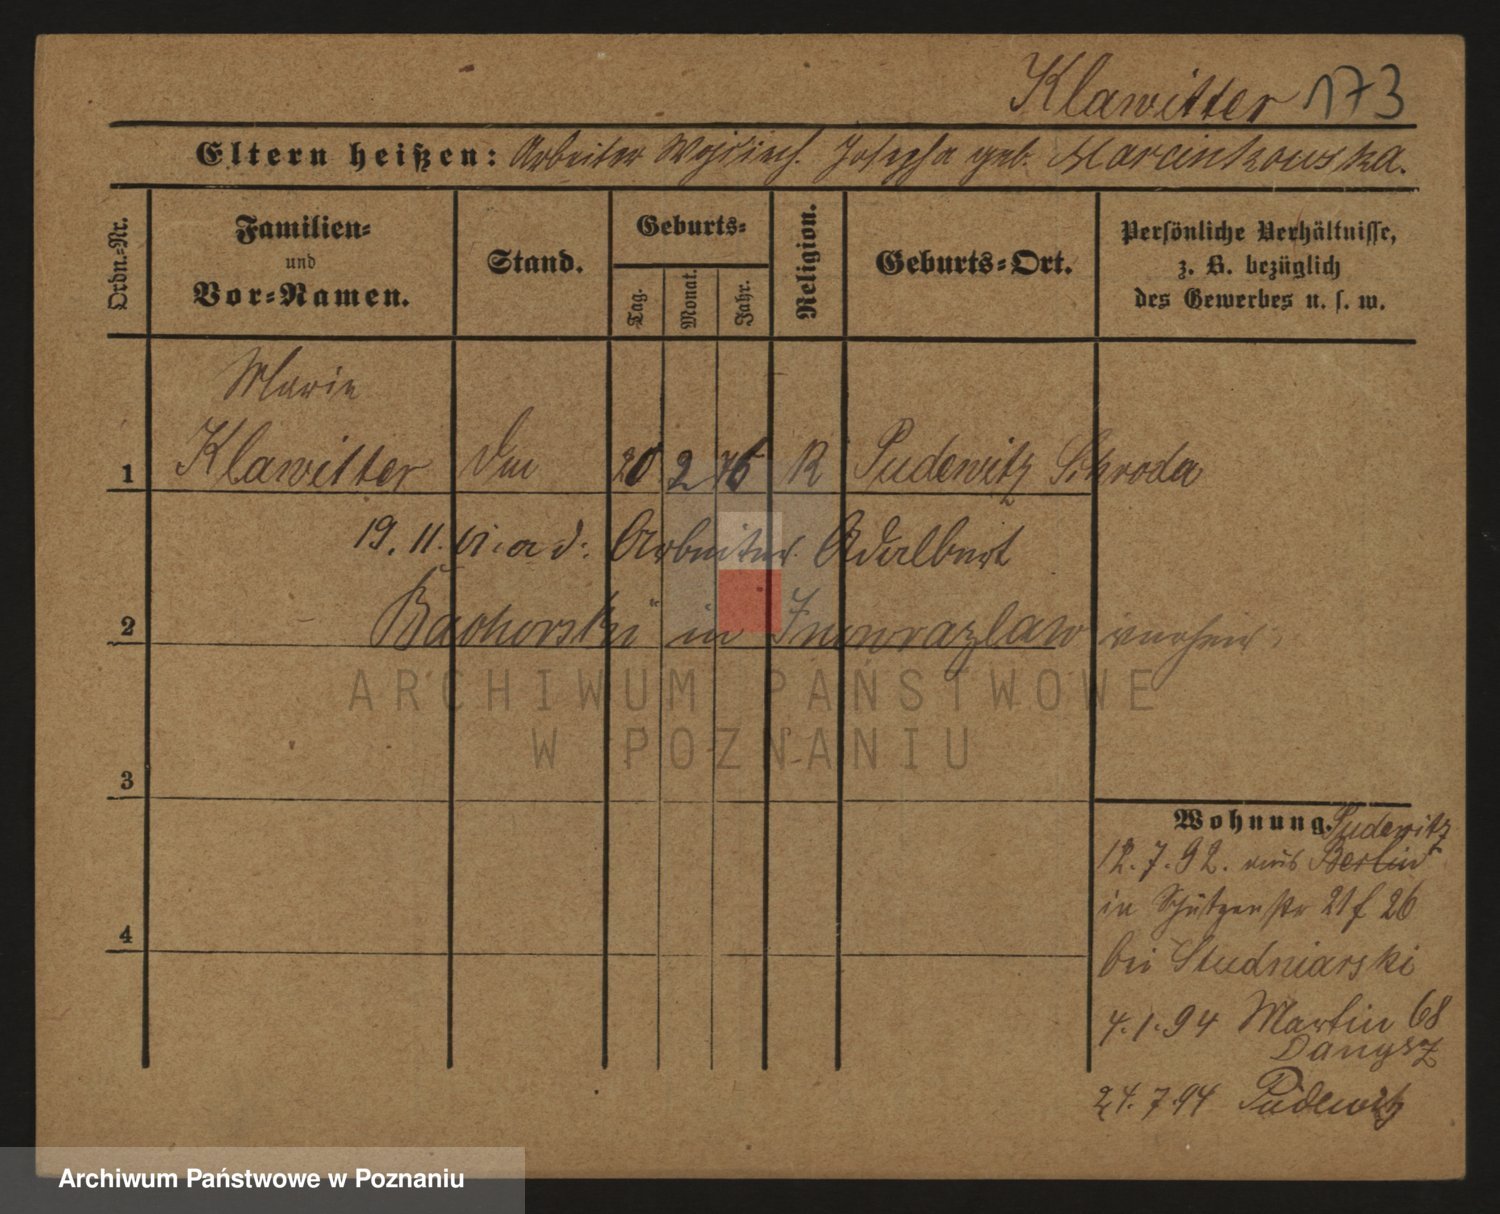 Klawitter 173
Eltern heißen: Arbeiter Wojciech. Josepha geb. Marcinkowska.
Ordn.-Nr.
Familien-
und
Vor-Namen.
Stand.
Geburts-
Tag.
Monat.
Jahr.
Religion.
Geburts-Ort.
Persönliche Verhältnisse,
z. B. bezüglich
des Gewerbes u. s. w.
Marie
1 Klawitter 20 2 76 R Pudewitz Schroda
19. 11. a. d. Arbeiter Adalbert
2 "Bachorski" in Inowrazlaw
3
4
Wohnung. Pudewitz
12. 7. 92. aus Berlin
in Schützenstr 21 f 26
bei Studniarski
4. 1. 94 Martin 68
Dangysz
24. 7. 94 Pudewitz
ARCHIWUM PAŃSTWOWE
W POZNANIU
Archiwum Państwowe w Poznaniu